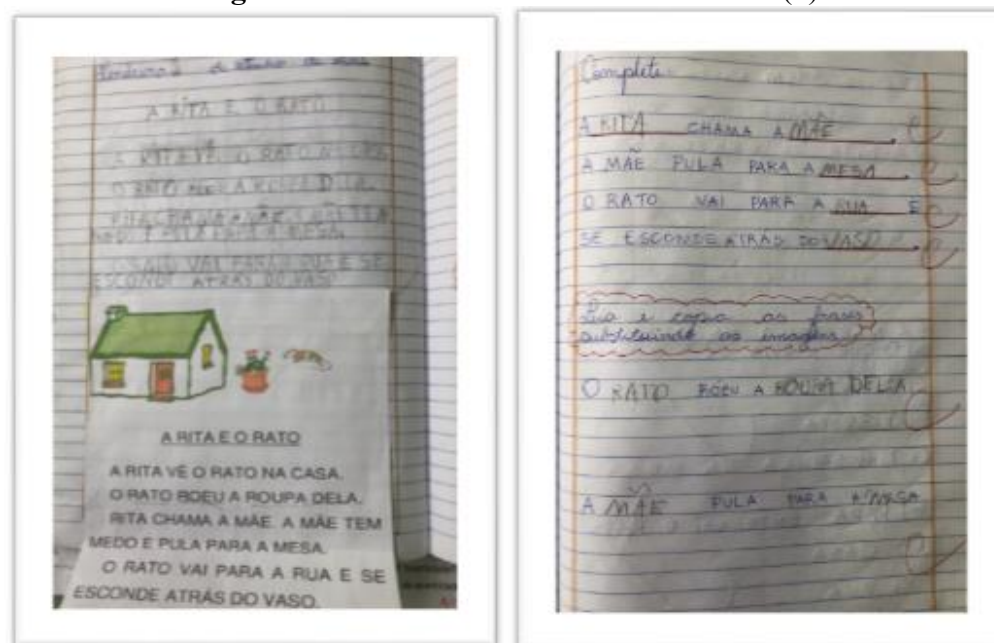 A RITA E O RATO
A RITA VÊ O RATO NA
O RATO ROEU A ROUPA DELA.
RITA CHAMA A MÃE. A MÃE TEM
MEDO E PULA PARA A MESA.
O RATO VAI PARA A RUA E SE
ESCONDE ATRÁS DO VASO
A RITA E O RATO
A RITA VÊ O RATO NA CASA.
O RATO ROEU A ROUPA DELA.
RITA CHAMA A MÃE. A MÃE TEM
MEDO E PULA PARA A MESA.
O RATO VAI PARA A RUA E SE
ESCONDE ATRÁS DO VASO.
Complete
A RITA CHAMA A MÃE.
A MÃE PULA PARA A MESA.
O RATO VAI PARA A RUA E
SE ESCONDE ATRÁS DO VASO.
Leia e copie as frases
substituindo as imagens
O RATO ROEU A ROUPA DELA
A MÃE PULA PARA A MESA